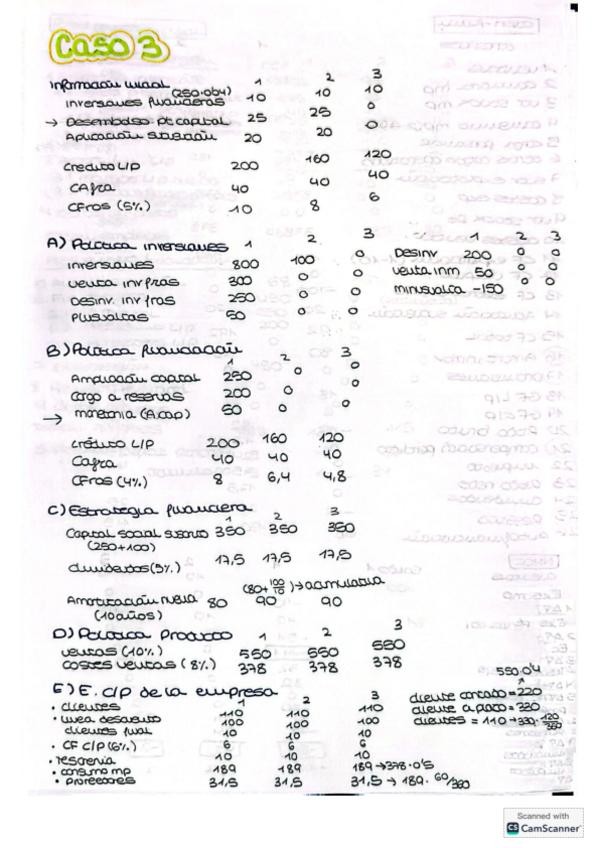 Caso 3
Información inicial 1 2 3
(250·0'04)
inversiones financieras 10 10 10
→ Desembolso pt capital 25 25 0
Aplicación 20 20 0
Crédito L/P 200 160 120
CAfra 40 40 40
CFros (5%) 10 8 6
A) Política inversiones 1 2 3
inversiones 800 100 0
venta inv fras 300 0 0
Desinv. inv fras 250 0 0
Plusvalías 50 0 0
1 2 3
Desinv. 200 0 0
venta inm 50 0 0
minusvalía -150 0 0
B) Política financiación 1 2 3
Ampliación capital 250 0 0
cargo a reservas 200 0 0
→ (A.cap) 50 0 0
crédito L/P 200 160 120
Cafra 40 40 40
CFros (4%) 8 6,4 4,8
C) Estrategia financiera 1 2 3
Capital social 350 350 350
(250+100)
dividendos (5%) 17,5 17,5 17,5
(80+ 100/10) → acumulativa
Amortización nueva 80 90 90
(10 años)
D) Política Producto 1 2 3
ventas (10%) 550 550 550
costes ventas (8%) 378 378 378
E) E. C/P de la empresa 1 2 3
• clientes 110 110 110
• línea descuento 100 100 100
clientes final 10 10 10
• CF C/P (6%) 6 6 6
• Tesorería 10 10 10
• consumo mp 189 189 189 → 378·0'5
• proveedores 31,5 31,5 31,5 → 189· 60/360
550·0'4
↑
cliente contado = 220
cliente a plazo = 330
clientes = 110 → 330· 120/360
Scanned with
CS CamScanner